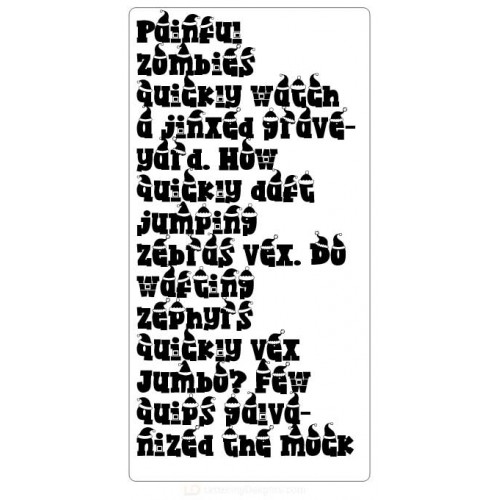 Painful
zombies
quickly watch
a jinxed grave-
yard. How
quickly daft
jumping
zebras vex. Do
wafting
zephyrs
quickly vex
Jumbo? Few
quips galva-
nized the mock